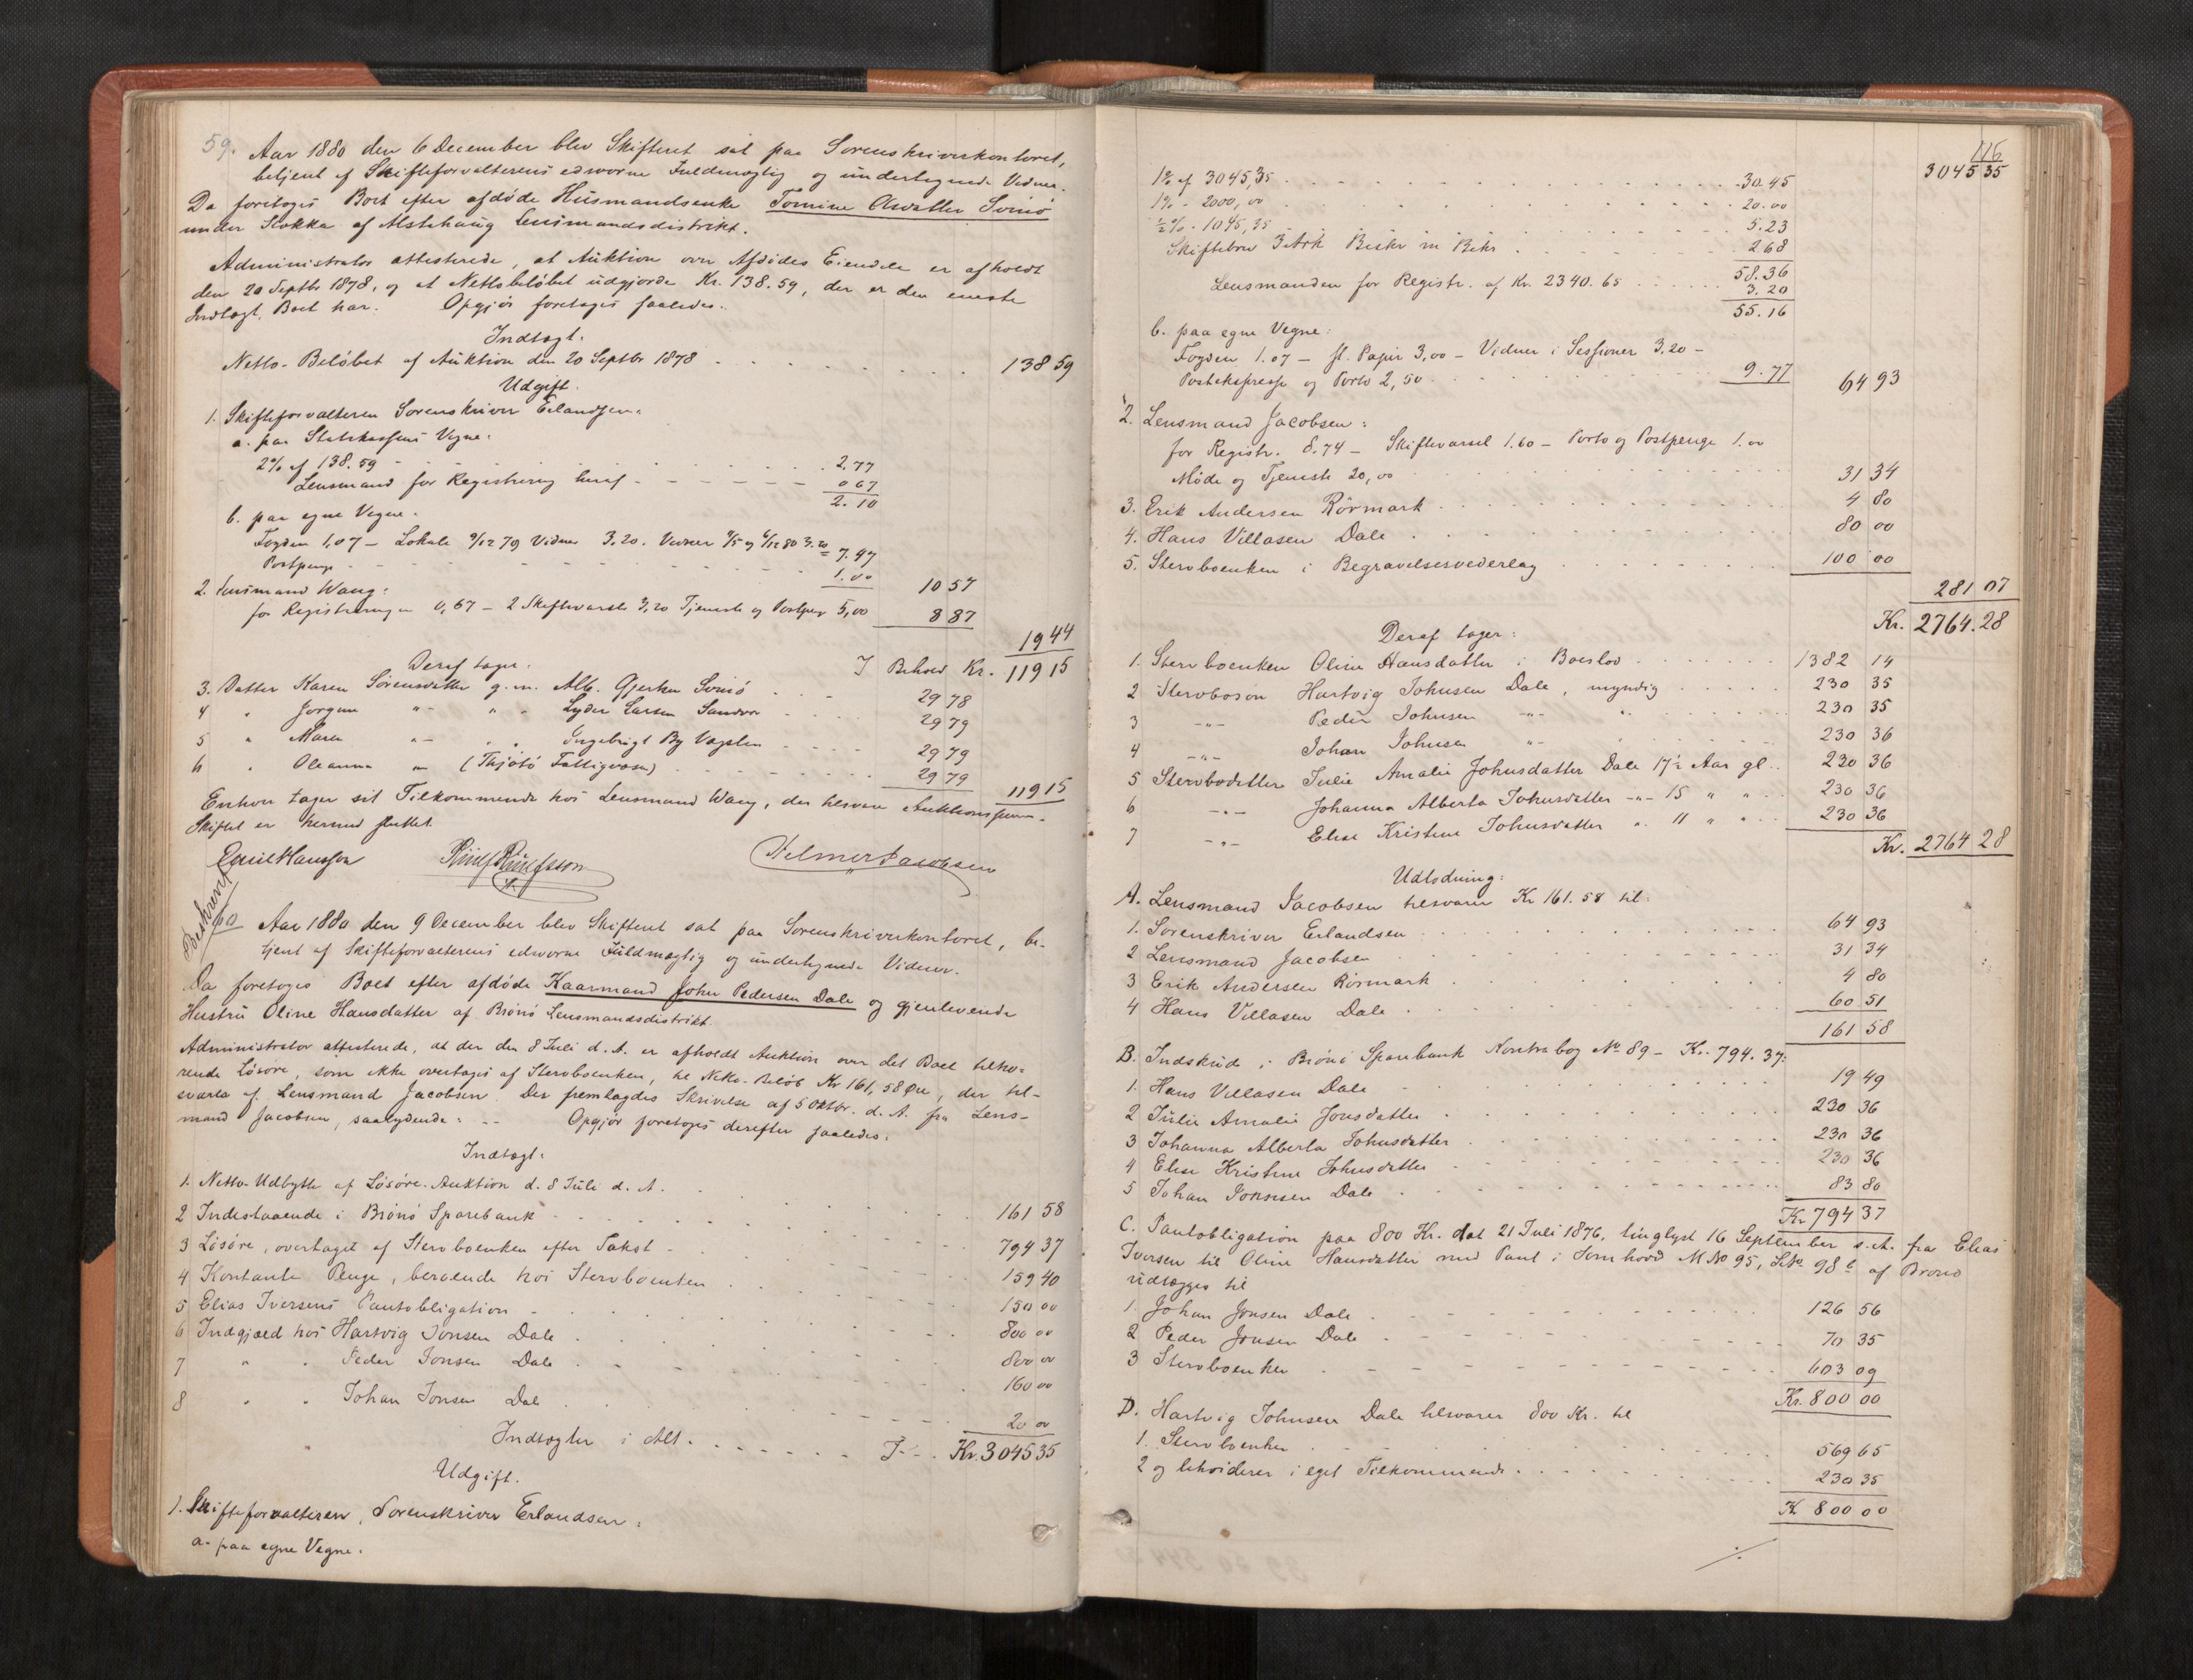 59. Aar 1880 den 6 December blev Skifteret sat paa Sorenskriverkontoret,
betjent af Skifteforvalterens edsvorne Fuldmægtig og undertegnede Vidner.
Da foretoges Boet efter afdöde Husmandsenke Tomine Olsdatter Svinö
under Stokka af Alstahaug Lensmandsdistrikt.
Administrator attesterede, at Auktion over Afdödes Eiendele er afholdt
den 20 Septbr 1878, og at Nettobelöbet udgjorde Kr. 138.59, der er den eneste
Indtægt, Boet har. Opgjör foretoges saaledes:
Indtægt:
Netto-Belöbet af Auktion den 20 Septbr 1878 138 59
Udgift.
1. Skifteforvalteren Sorenskriver Erlandsen:
a. paa Statskassens Vegne:
2% af 138.59 2,77
Lensmand for Registrering heraf 0 67
2.10
b. paa egne Vegne:
Fogden 1,07 – Lokale 9/12 79 Vidner 3.20. Vidner 4/5 og 6/12 80 3.20 = 7.47
Postpenge 1.00
10 57
2. Lensmand Wang:
for Registreringen 0,67 – 2 Skiftevarsler 3,20 Tjeneste og Postpenge 5,00 8 87
19 44
I Behold Kr. 119 15
Deraf tager:
3. Datter Karen Sörensdatter g. m. Alb. Gjertsen Svinö 29 78
4 " Jorgine " " " Lyder Larsen Sandvær 29 79
5 " Maren " " " Ingebrigt By Vagsten 29 79
6 " Oleanna " (Thjötö Fattigvæsen) 29 79
119 15
Enhver tager sit Tilkommende hos Lensmand Wang, der tilsvarer Auktionssummen.
Skiftet er hermed sluttet.
Emil Hansson Rüulf Rüulfsson Hilmer Jacobsen
Beskrevet
60 Aar 1880 den 9 December blev Skifteret sat paa Sorenskriverkontoret, be-
tjent af Skifteforvalterens edsvorne Fuldmægtig og undertegnede Vidner.
Da foretoges Boet efter afdöde Kaarmand John Pedersen Dale og gjenlevende
Hustru Oline Hansdatter af Brönö Lensmandsdistrikt.
Administrator attesterede, at der den 8 Juli d. A. er afholdt Auktion over det Boet tilhö-
rende Lösöre, som ikke overtoges af Stervboenken, til Netto-Belöb Kr 161,58 Öre, der til-
svares af Lensmand Jacobsen. Der fremlagdes Skrivelse af 5 Oktbr. d. A. fra Lens-
mand Jacobsen, saalydende: -- Opgjör foretoges derefter saaledes:
Indtægt:
1. Netto-Udbytte af Lösöre-Auktion d. 8 Juli d. A. 161 58
2 Indestaaende i Brönö Sparebank 794 37
3 Lösöre, overtaget af Stervboenken efter Takst 159 40
4 Kontante Penge, beroende hos Stervboenken 150 00
5 Elias Iversens Pantobligation 800 00
6 Indgjæld hos Hartvig Jonsen Dale 800 00
7 " " Peder Jonsen Dale 160 00
8 " " Johan Jonsen Dale 20 00
Indtægter i Alt. I-- Kr. 3045 35
Udgift.
1. Skifteforvalteren, Sorenskriver Erlandsen:
a. paa egne Vegne:
116
3045 35
1% af 3045,35 30.45
1% - 2000,00 20.00
½% - 1045,35 5.23
Skiftebrev 3 Ark Beskr m Bekr 2 68
58.36
Lensmanden for Registr. af Kr. 2340.65 3.20
55.16
b. paa egne Vegne:
Fogden 1.07 – st. Papir 3,00 – Vidner i Sessioner 3,20 –
Postekspresse og Porto 2,50 9.77
64 93
2. Lensmand Jacobsen:
for Registr. 8.74 – Skiftevarsel 1.60 – Porto og Postpenge 1.00
Möde og Tjeneste 20,00 31 34
3. Erik Andersen Rörmark 4 80
4. Hans Villasen Dale 80 00
5. Stervboenken i Begravelsesvederlag 100 00
281 07
Kr. 2764.28
Deraf tager:
1. Stervboenken Oline Hansdatter i Boeslod 1382 14
2 Stervbosön Hartvig Johnsen Dale, myndig 230 35
3 -"- Peder Johnsen -"- " 230 35
4 -"- Johan Johnsen -"- " 230 36
5 Stervbodatter Julie Amalie Johnsdatter Dale 17½ Aar gl. 230 36
6 -"- Johanna Alberta Johnsdatter -"- 15 " " 230 36
7 -"- Elise Kristine Johnsdatter " 11 " " 230 36
Kr. 2764 28
Udlodning:
A. Lensmand Jacobsen tilsvarer Kr 161.58 til:
1. Sorenskriver Erlandsen 64 93
2 Lensmand Jacobsen 31 34
3 Erik Andersen Rörmark 4 80
4 Hans Villasen Dale 60 51
161 58
B. Indskud i Brönö Sparebank Kontrabog No 89 – Kr. 794.37:
1. Hans Villasen Dale 19 49
2 Julie Amalie Jonsdatter 230 36
3 Johanna Alberta Johnsdatter 230 36
4 Elise Kristine Johnsdatter 230 36
5 Johan Jonssen Dale 83 80
Kr 794 37
C. Pantobligation paa 800 Kr. dat 21 Juli 1876, tinglyst 16 September s. A. fra Elias
Iversen til Oline Hansdatter med Pant i Tornhoved M No 95, L No 98 c af Brönö
udlægges til
1. Johan Jonsen Dale 126 56
2 Peder Jonsen Dale 70 35
3 Stervboenken 603 09
Kr. 800 00
D. Hartvig Johnsen Dale tilsvarer 800 Kr. til
1. Stervboenken 569 65
2 og likviderer i eget Tilkommende 230 35
Kr 800 00